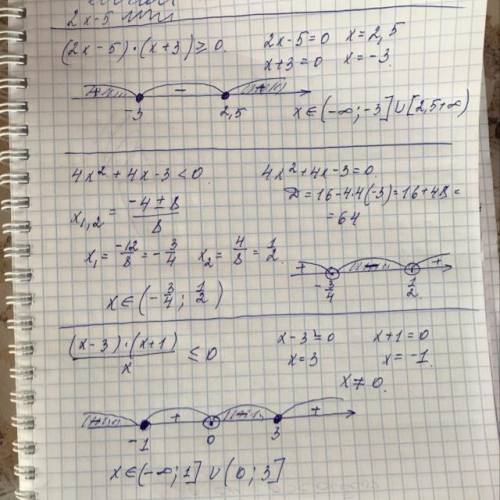 2x-5
(2x-5)·(x+3)≥0 2x-5=0 x=2,5
x+3=0 x=-3
+ - +
-3 2,5
x∈(-∞;-3]∪[2,5+∞)
4x²+4x-3<0 4x²+4x-3=0
D=16-4·4(-3)=16+48=
=64
x₁,₂=(-4±8)/8
x₁=-12/8=-3/4 x₂=4/8=1/2
+ - +
-3/4 1/2
x∈(-3/4; 1/2)
((x-3)·(x+1))/x ≤0 x-3=0 x+1=0
x=3 x=-1
x≠0
- + - +
-1 0 3
x∈(-∞;1]∪(0;3]